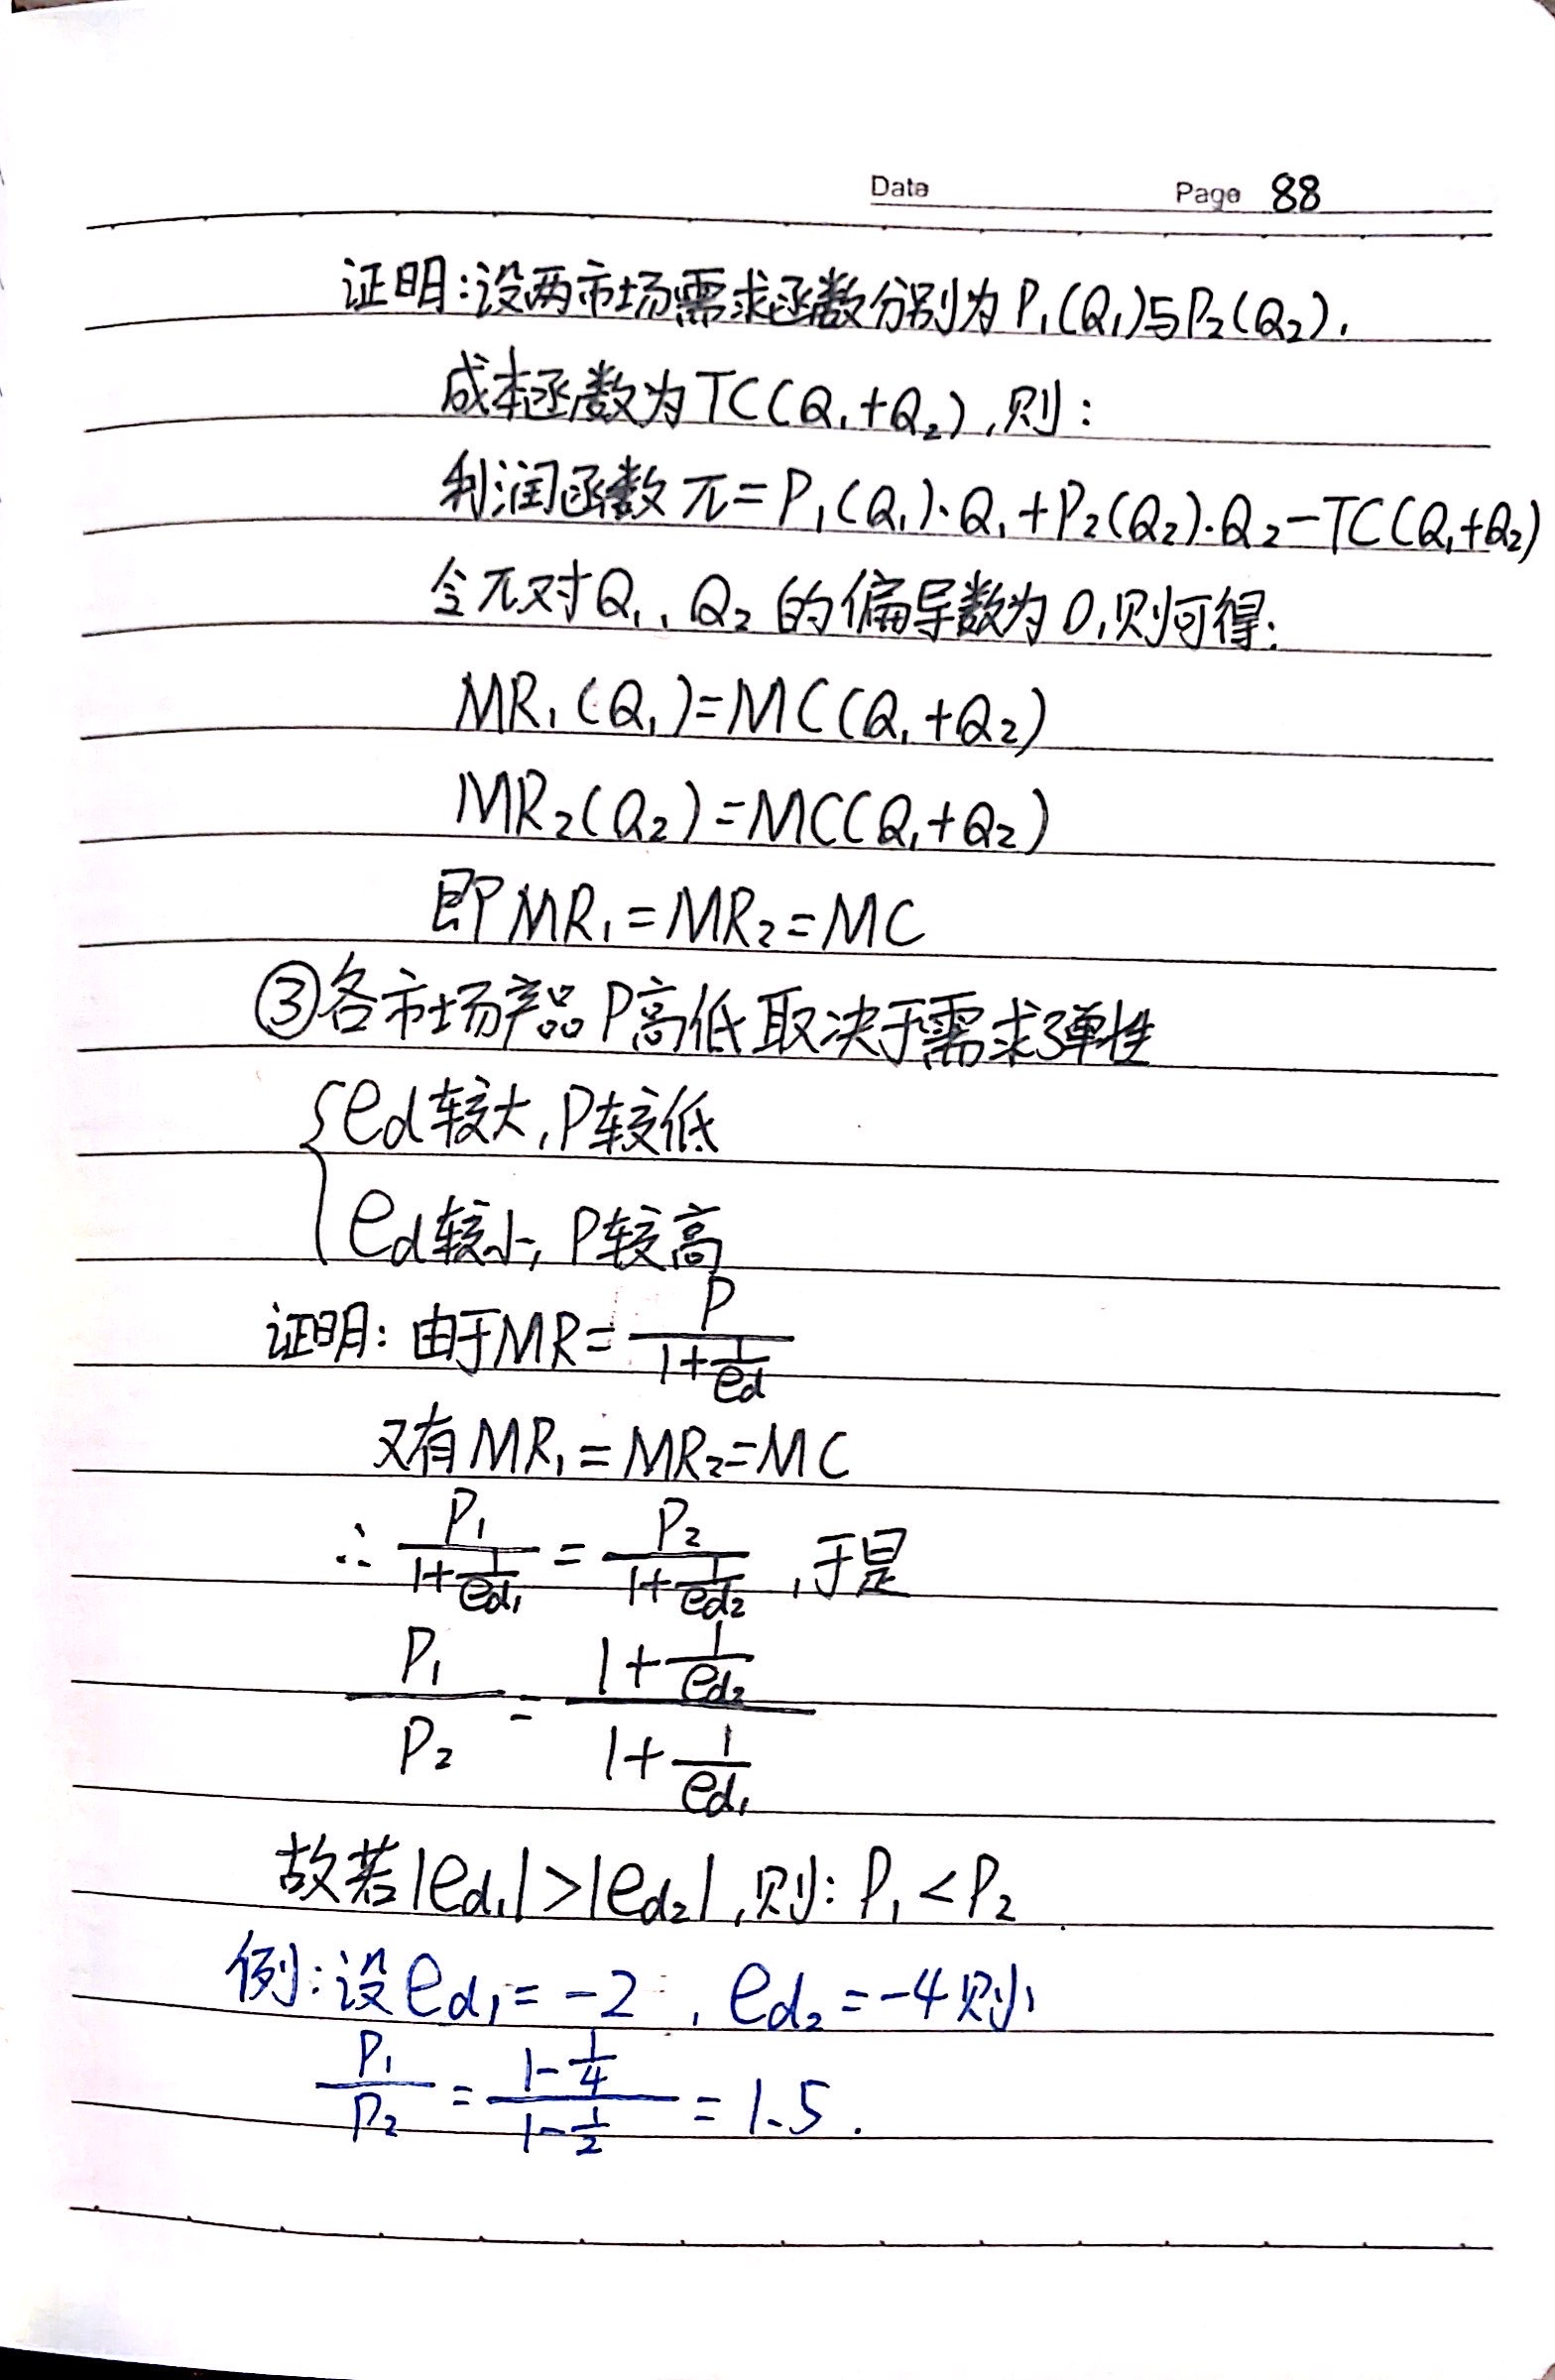 Date Page 88
证明:设两市场需求函数分别为P₁(Q₁)与P₂(Q₂),
成本函数为TC(Q₁+Q₂),则:
利润函数 π=P₁(Q₁)·Q₁+P₂(Q₂)·Q₂-TC(Q₁+Q₂)
令π对Q₁、Q₂的偏导数为0,则可得:
MR₁(Q₁)=MC(Q₁+Q₂)
MR₂(Q₂)=MC(Q₁+Q₂)
即MR₁=MR₂=MC
③各市场产品P高低取决于需求弹性
{ed较大,P较低
ed较小,P较高
证明:由于MR=P/(1+1/ed)
又有MR₁=MR₂=MC
∴P₁/(1+1/ed₁)=P₂/(1+1/ed₂),于是
P₁/P₂=(1+1/ed₂)/(1+1/ed₁)
故若|ed₁|>|ed₂|,则:P₁<P₂
例:设ed₁=-2,ed₂=-4则
P₁/P₂=(1-1/4)/(1-1/2)=1.5.